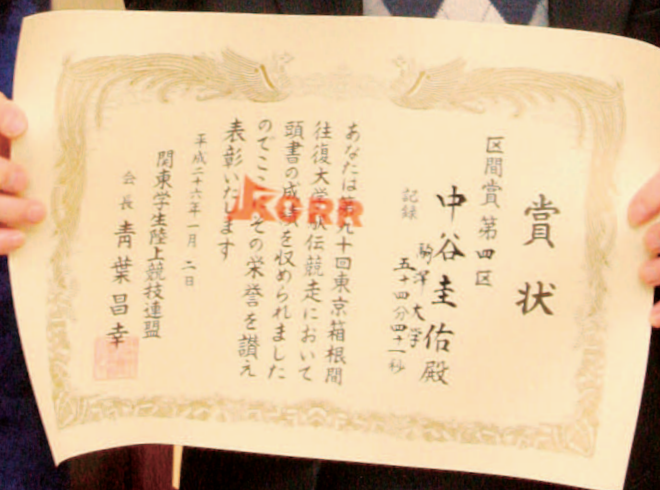 賞状
区間賞 第四区
中谷圭佑殿
駒澤大学
記録 五十四分四十一秒
あなたは第九十回東京箱根間
往復大学駅伝競走において
頭書の成績を収められました
のでここにその栄誉を讃え
表彰いたします
平成二十六年一月二日
関東学生陸上競技連盟
会長 青葉昌幸
KGRR